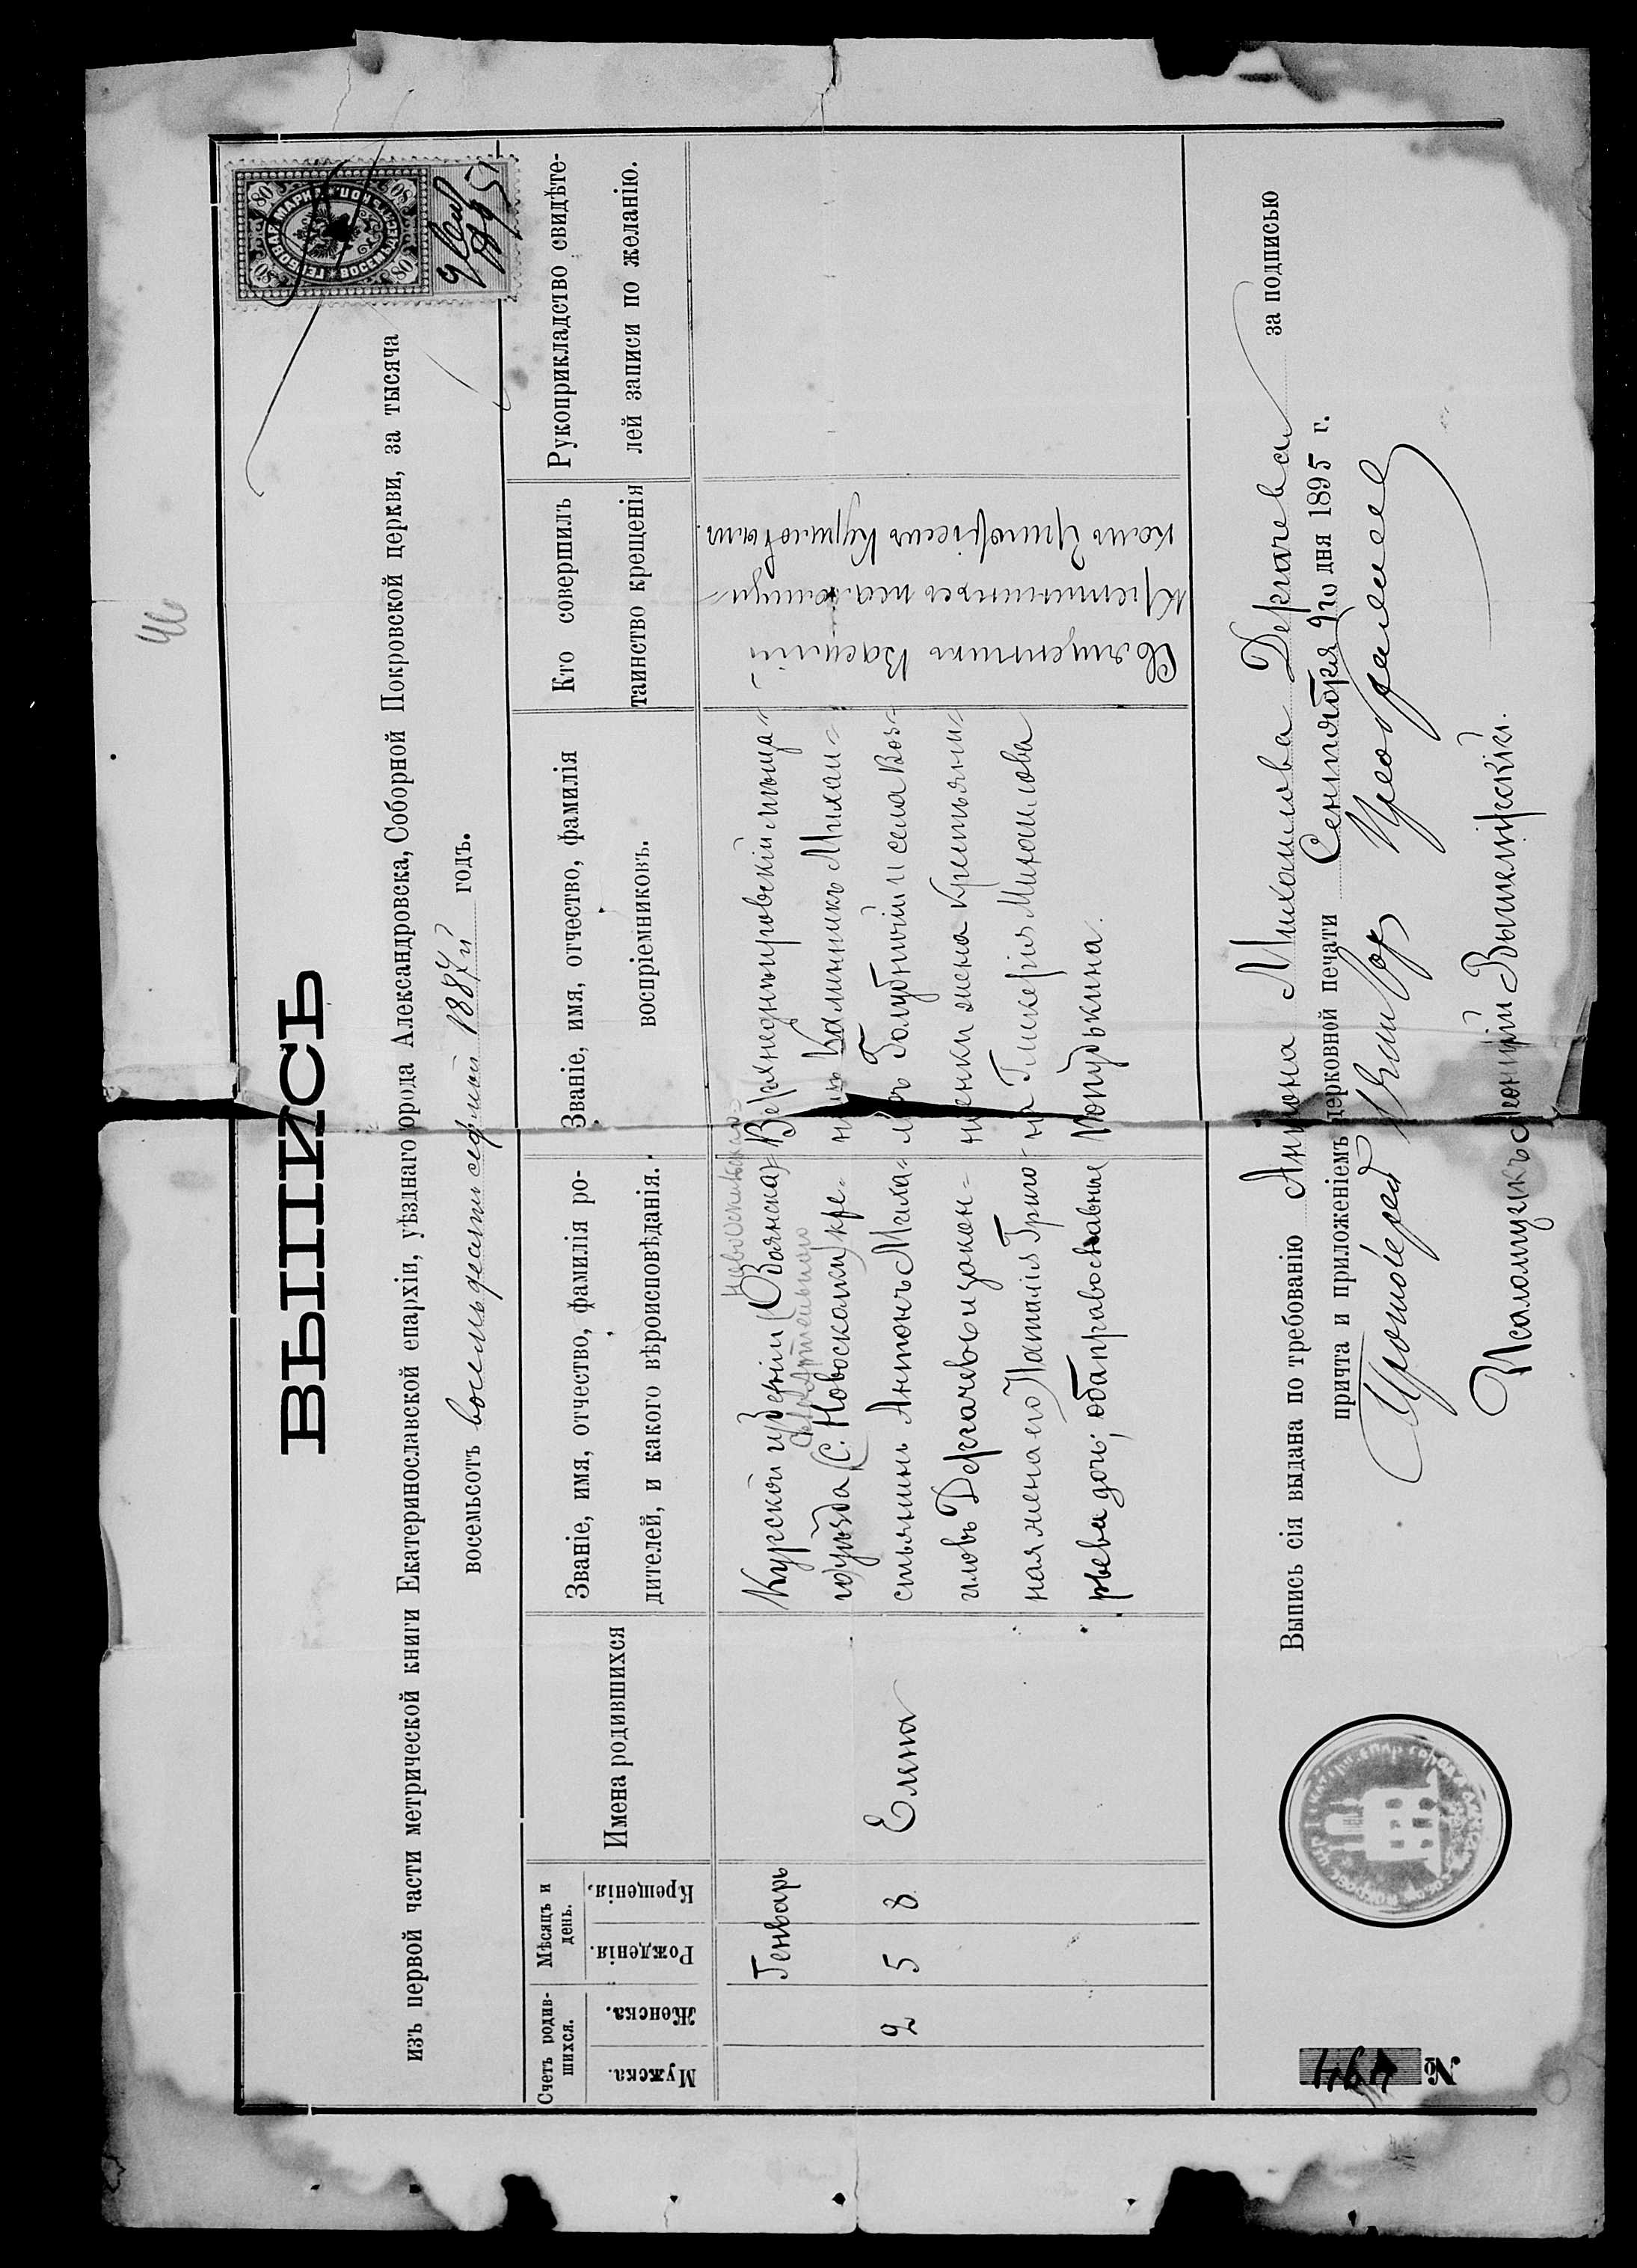 46
ВЫПИСЬ
изъ первой части метрической книги Екатеринославской епархіи, уѣзднаго города Александровска, Соборной Покровской церкви, за тысяча
восемьсотъ восемьдесятъ седьмой 1887й годъ.
80 80
ГЕРБОВАЯ МАРКА ВОСЕМЬДЕСЯТЪ КОП.
80 80
9 Сен
1895
Счетъ родив-
шихся.
Мужска.
Женска.
Мѣсяцъ и
день.
Рожденія.
Крещенія.
Имена родившихся
Званіе, имя, отчество, фамилія ро-
дителей, и какого вѣроисповѣданія.
Званіе, имя, отчество, фамилія
воспріемниковъ.
Кто совершилъ
таинство крещенія
Рукоприкладство свидѣте-
лей записи по желанію.
2
Генварь
5 8
Елена
Курской губерніи (Обоянска
го) уѣзда (С. Новоскалки) кре-
стьянинъ Антонъ Миха-
иловъ Дергачевъ и закон-
ная жена его Наталія Григо-
рьева дочь; оба православные
Верхнеднѣпровскій мѣща-
нинъ Калинникъ Михаи-
лъ Голубный и села Воз-
несенки жена крестьяни-
на Гликерія Михаилова
Священникъ Василій
съ псаломщи-
комъ
Выпись сія выдана по требованію Антона Михаилова Дергачева за подписью
причта и приложеніемъ церковной печати Сентября 9го дня 1895 г.
Протоіерей
Псаломщикъ
№ 494